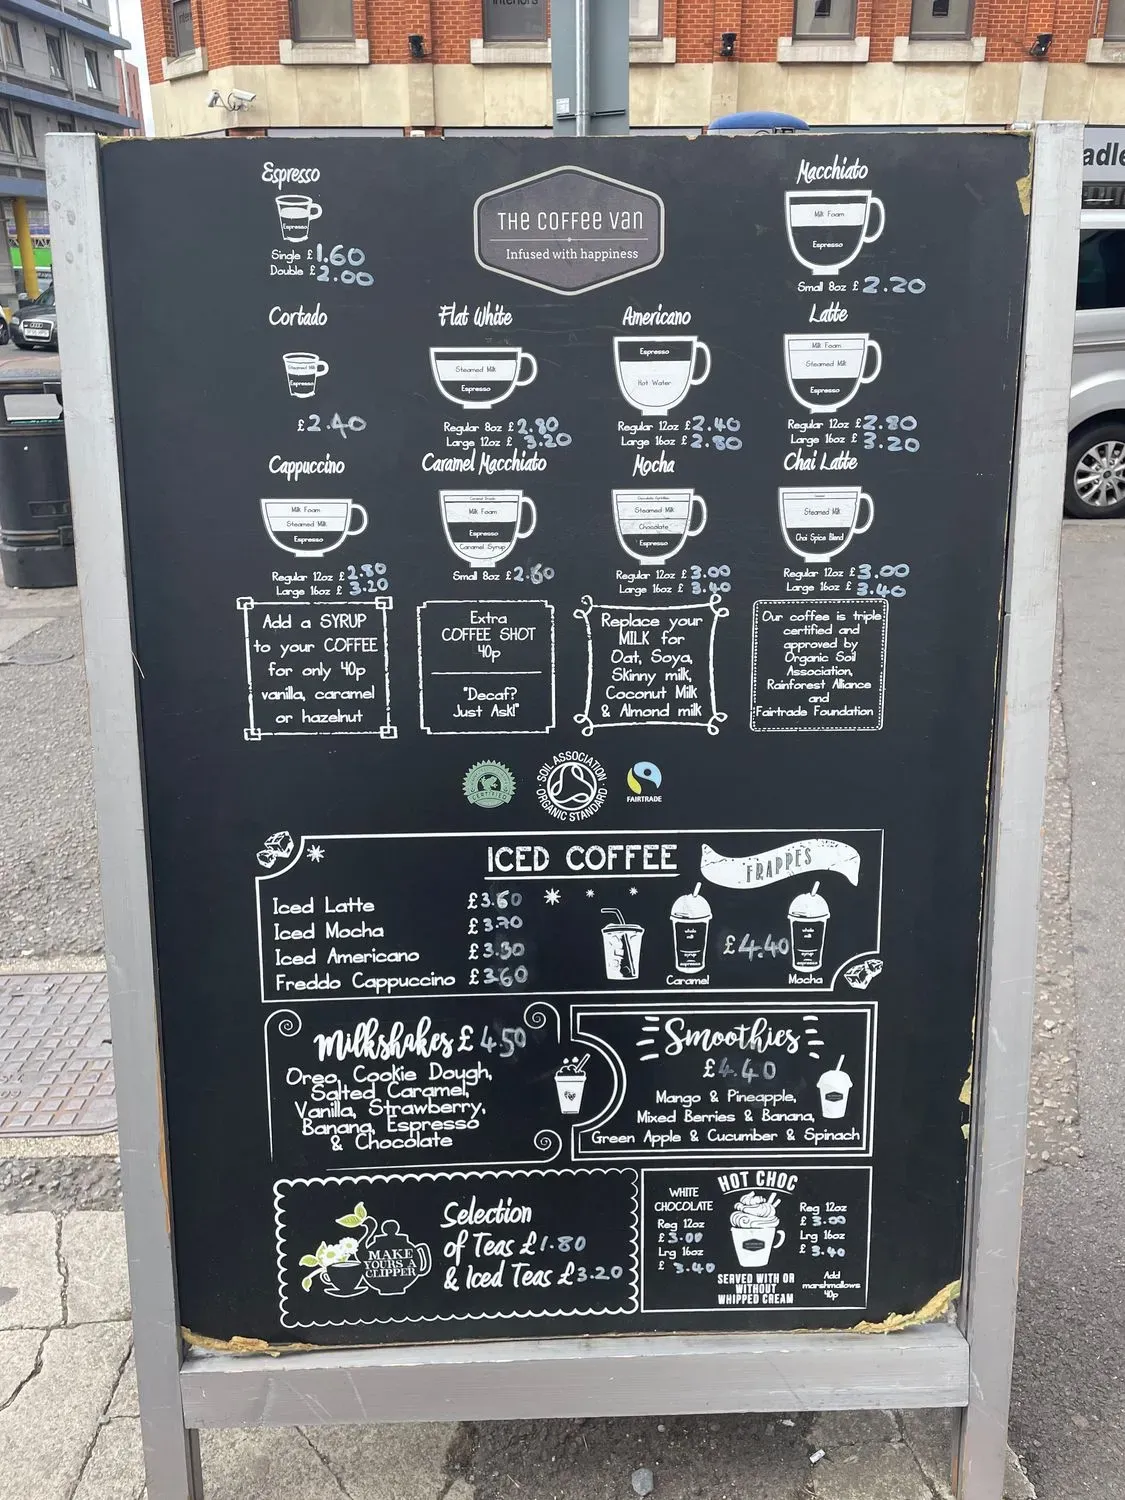 interiors
adle
THE COFFEE VAN
Infused with happiness
Espresso
Espresso
Single £1.60
Double £2.00
Macchiato
Milk Foam
Espresso
Small 8oz £2.20
Cortado
Steamed Milk
Espresso
£2.40
Flat White
Steamed Milk
Espresso
Regular 8oz £2.80
Large 12oz £ 3.20
Americano
Espresso
Hot Water
Regular 12oz £2.40
Large 16oz £2.80
Latte
Milk Foam
Steamed Milk
Espresso
Regular 12oz £2.80
Large 16oz £ 3.20
Cappuccino
Milk Foam
Steamed Milk
Espresso
Regular 12oz £2.80
Large 16oz £ 3.20
Caramel Macchiato
Caramel Drizzle
Milk Foam
Espresso
Caramel Syrup
Small 8oz £2.60
Mocha
Steamed Milk
Chocolate
Espresso
Regular 12oz £3.00
Large 16oz £ 3.40
Chai Latte
Steamed Milk
Chai Spice Blend
Regular 12oz £3.00
Large 16oz £ 3.40
Add a SYRUP
to your COFFEE
for only 40p
vanilla, caramel
or hazelnut
Extra
COFFEE SHOT
40p
"Decaf?
Just Ask!"
Replace your
MILK for
Oat, Soya,
Skinny milk,
Coconut Milk
& Almond milk
Our coffee is triple
certified and
approved by
Organic Soil
Association,
Rainforest Alliance
and
Fairtrade Foundation
CERTIFIED
SOIL ASSOCIATION
ORGANIC STANDARD
FAIRTRADE
ICED COFFEE
Iced Latte £3.60
Iced Mocha £3.70
Iced Americano £3.30
Freddo Cappuccino £3.60
FRAPPES
whole milk
syrup
espresso
Caramel
£4.40
whole milk
syrup
espresso
Mocha
Milkshakes £ 4.50
Oreo, Cookie Dough,
Salted Caramel,
Vanilla, Strawberry,
Banana, Espresso
& Chocolate
Smoothies
£4.40
Mango & Pineapple,
Mixed Berries & Banana,
Green Apple & Cucumber & Spinach
MAKE
YOURS A
CLIPPER
Selection
of Teas £1.80
& Iced Teas £3.20
HOT CHOC
WHITE
CHOCOLATE
Reg 12oz
£ 3.00
Lrg 16oz
£ 3.40
SERVED WITH OR
WITHOUT
WHIPPED CREAM
Reg 12oz
£ 3.00
Lrg 16oz
£ 3.40
Add
marshmallows
40p